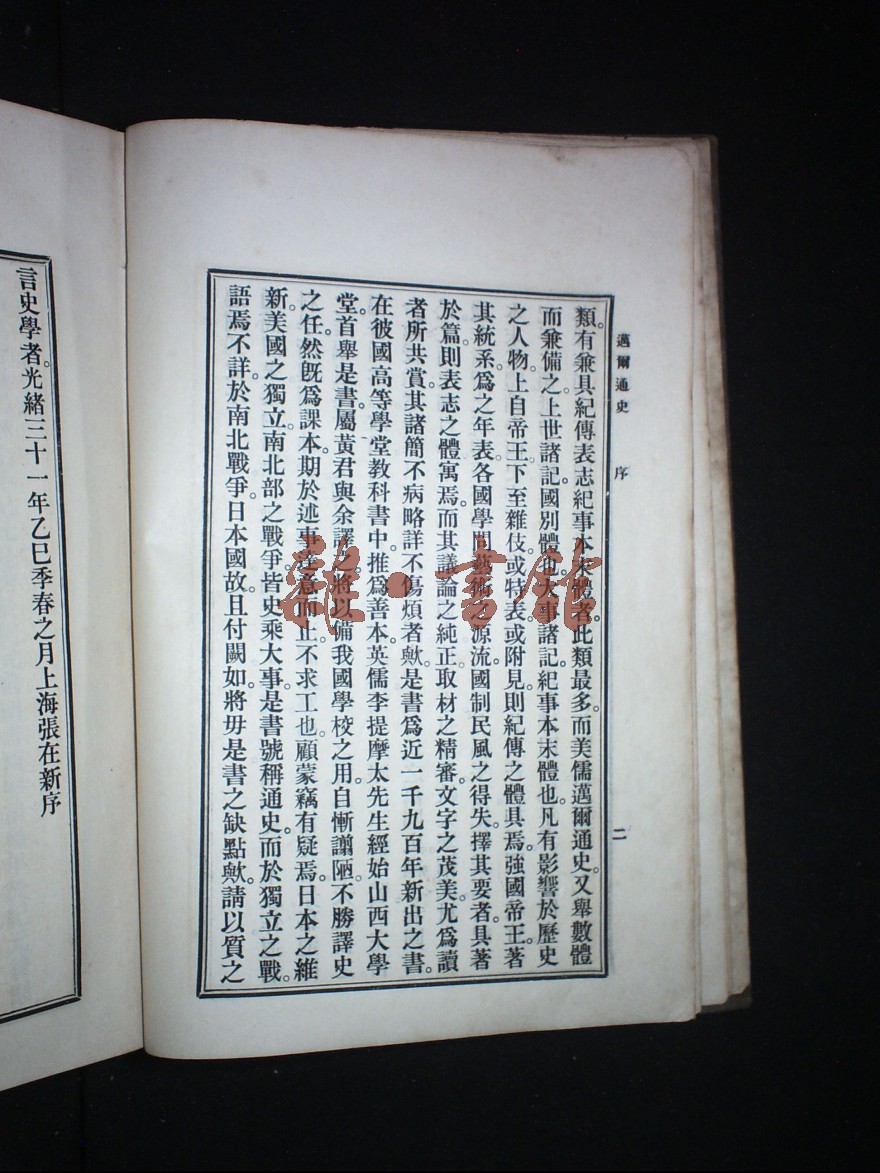 邁爾通史 序 二
類。有兼具紀傳表志紀事本末體者。此類最多。而美儒邁爾通史。又舉數體
而兼備之。上世諸記。國別體也。大事諸記。紀事本末體也。凡有影響於歷史
之人物。上自帝王。下至雜伎。或特表。或附見。則紀傳之體具焉。強國帝王。著
其統系。爲之年表。各國學問藝術之源流。國制民風之得失。擇其要者。具著
於篇。則表志之體寓焉。而其議論之純正。取材之精審。文字之茂美。尤爲讀
者所共賞。其諸簡不病略。詳不傷煩者歟。是書爲近一千九百年新出之書。
在彼國高等學堂教科書中。推爲善本。英儒李提摩太先生經始山西大學
堂。首舉是書。屬黃君與余譯之。將以備我國學校之用。自慚譾陋。不勝譯史
之任。然旣爲課本。期於述事達意而止。不求工也。顧蒙竊有疑焉。日本之維
新。美國之獨立。南北部之戰爭。皆史乘大事。是書號稱通史。而於獨立之戰。
語焉不詳。於南北戰爭。日本國故。且付闕如。將毋是書之缺點歟。請以質之
言史學者。光緒三十一年乙巳季春之月上海張在新序
雜·書館